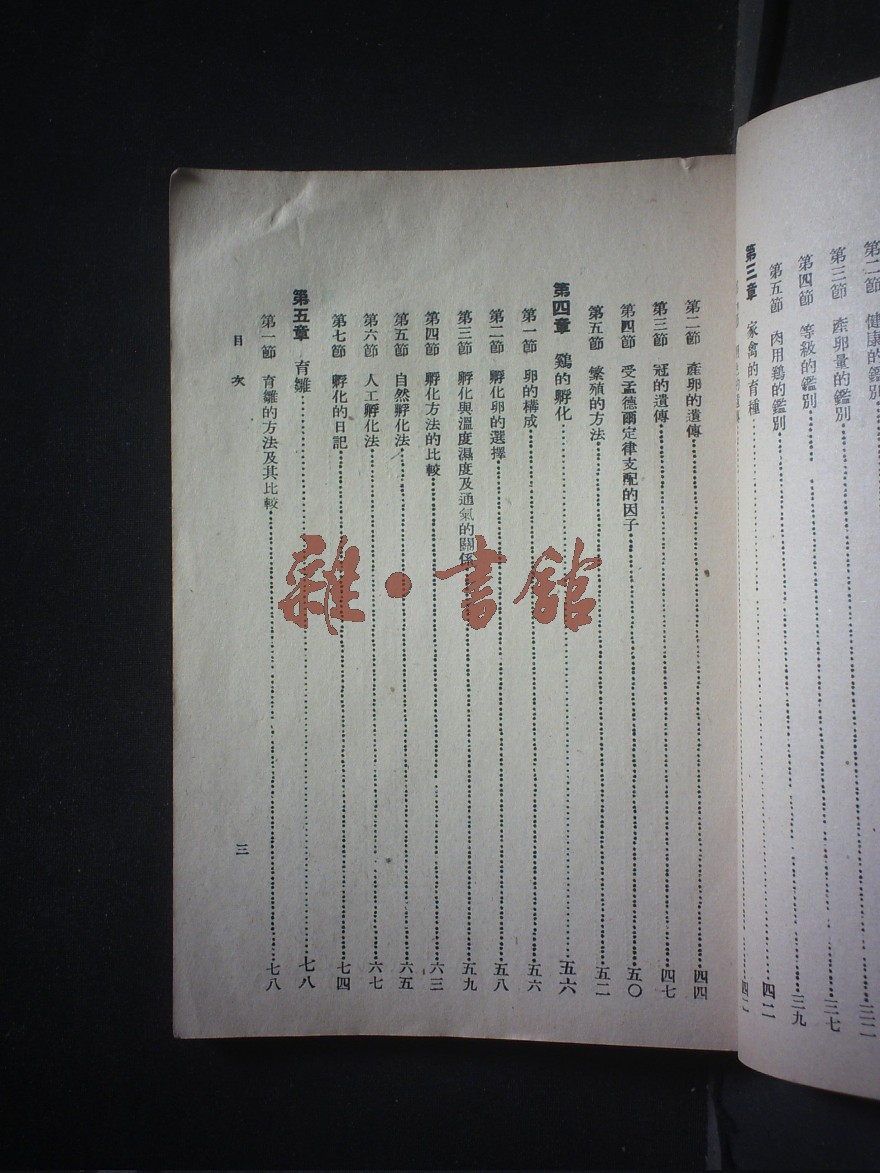 第二節 健康的鑑別
第三節 產卵量的鑑別 三七
第四節 等級的鑑別 三九
第五節 肉用鷄的鑑別 四二
第三章 家禽的育種
第二節 產卵的遺傳 四四
第三節 冠的遺傳 四七
第四節 受孟德爾定律支配的因子 五〇
第五節 繁殖的方法 五二
第四章 鷄的孵化 五六
第一節 卵的構成 五六
第二節 孵化卵的選擇 五八
第三節 孵化與溫度濕度及通氣的關係 五九
第四節 孵化方法的比較 六三
第五節 自然孵化法 六五
第六節 人工孵化法 六七
第七節 孵化的日記 七四
第五章 育雛 七八
第一節 育雛的方法及其比較 七八
目次 三
雜·書館